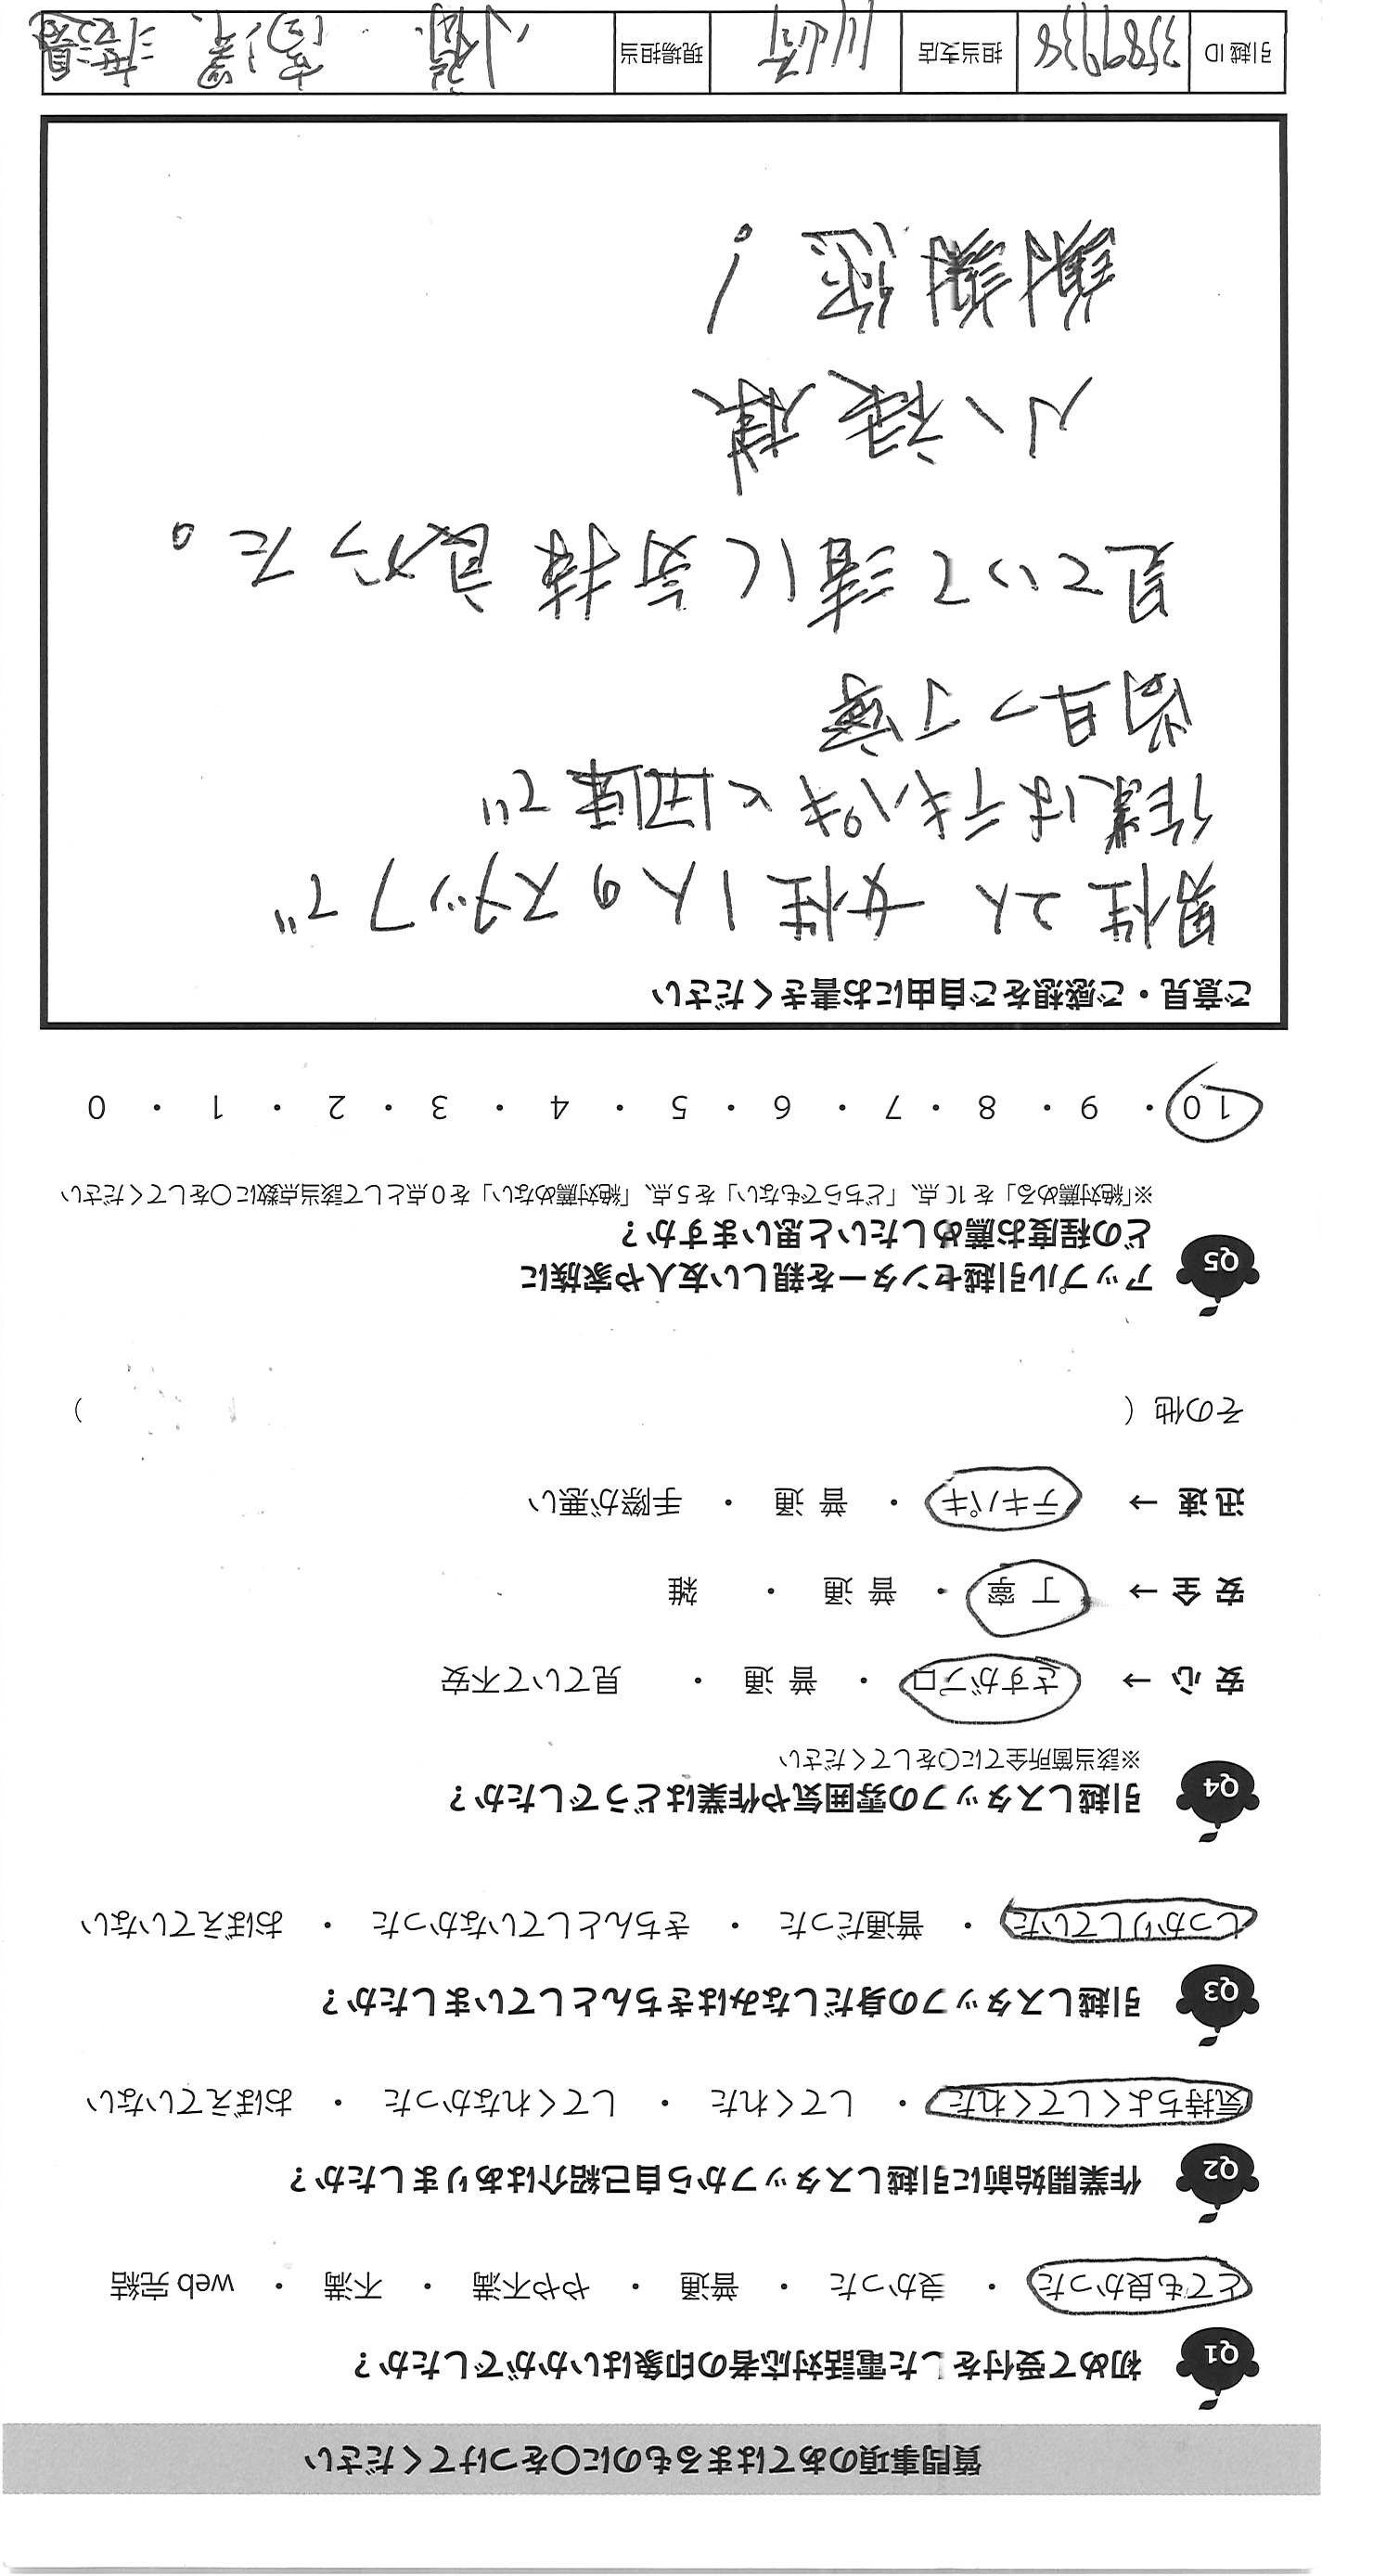 質問事項のあてはまるものに〇をつけてください
Q1 初めて受付をした電話対応者の印象はいかがでしたか?
とても良かった ・ 良かった ・ 普通 ・ やや不満 ・ 不満 ・ web 完結
Q2 作業開始前に引越しスタッフから自己紹介はありましたか?
気持ちよくしてくれた ・ してくれた ・ してくれなかった ・ おぼえていない
Q3 引越しスタッフの身だしなみはきちんとしていましたか?
しっかりしていた ・ 普通だった ・ きちんとしていなかった ・ おぼえていない
Q4 引越しスタッフの雰囲気や作業はどうでしたか?
※該当箇所全てに〇をしてください
安心 → さすがプロ ・ 普通 ・ 見ていて不安
安全 → 丁寧 ・ 普通 ・ 雑
迅速 → テキパキ ・ 普通 ・ 手際が悪い
その他 ( )
Q5 アップル引越センターを親しい友人や家族に
どの程度お薦めしたいと思いますか?
※「絶対薦める」を10点、「どちらでもない」を5点、「絶対薦めない」を0点として該当点数に〇をしてください
10 ・ 9 ・ 8 ・ 7 ・ 6 ・ 5 ・ 4 ・ 3 ・ 2 ・ 1 ・ 0
ご意見・ご感想をご自由にお書きください
男性2人 女性1人のスタッフで
作業はテキパキと迅速で
尚且つ丁寧
見ていて誠に気持良かった。
様
感謝!
引越ID 担当支店 川崎 現場担当